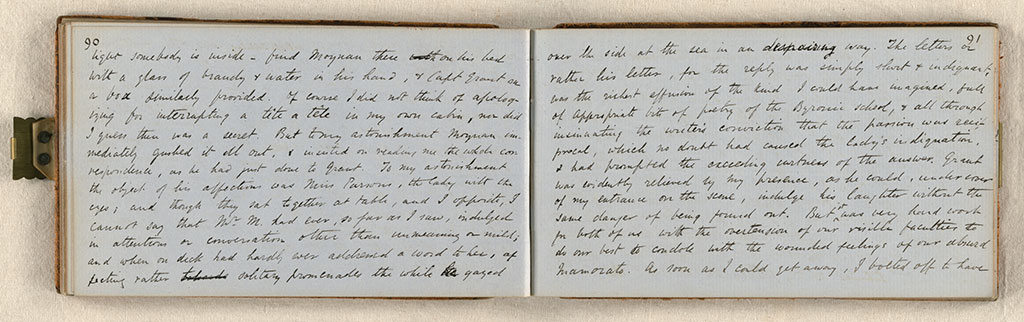 90
light somebody is inside - find Moynan there on his bed
with a glass of brandy & water in his hand, & Capt Grant on
a box similarly provided. Of course I did not think of apolog-
izing for interrupting a tête a tête in my own cabin, nor did
I guess there was a secret. But to my astonishment Moynan im-
mediately gushed it all out, & insisted on reading me the whole cor-
respondence, as he had just done to Grant. To my astonishment
the object of his affections was Miss Parsons, the lady with the
eyes; and though they sat together at table, and I opposite, I
cannot say that Mr. M. had ever, so far as I saw, indulged
in attentions or conversation other than unmeaning or mild;
and when on deck had hardly ever addressed a word to her, af-
fecting rather solitary promenades the while he gazed
91
over the side at the sea in an despairing way. The letters or
rather his letter, for the reply was simply short & indignant,
was the richest effusion of the kind I could have imagined, full
of appropriate bits of poetry of the Byronic school, & all through
insinuating the writer's conviction that the passion was reci-
procal, which no doubt had caused the lady's indignation,
& had prompted the exceeding curtness of the answer. Grant
was evidently relieved by my presence, as he could, under cover
of my entrance on the scene, indulge his laughter without the
same danger of being found out. But it was very hard work
for both of us with the overtension of our risible faculties to
do our best to condole with the wounded feelings of our absurd
Inamorato. As soon as I could get away, I bolted off to have